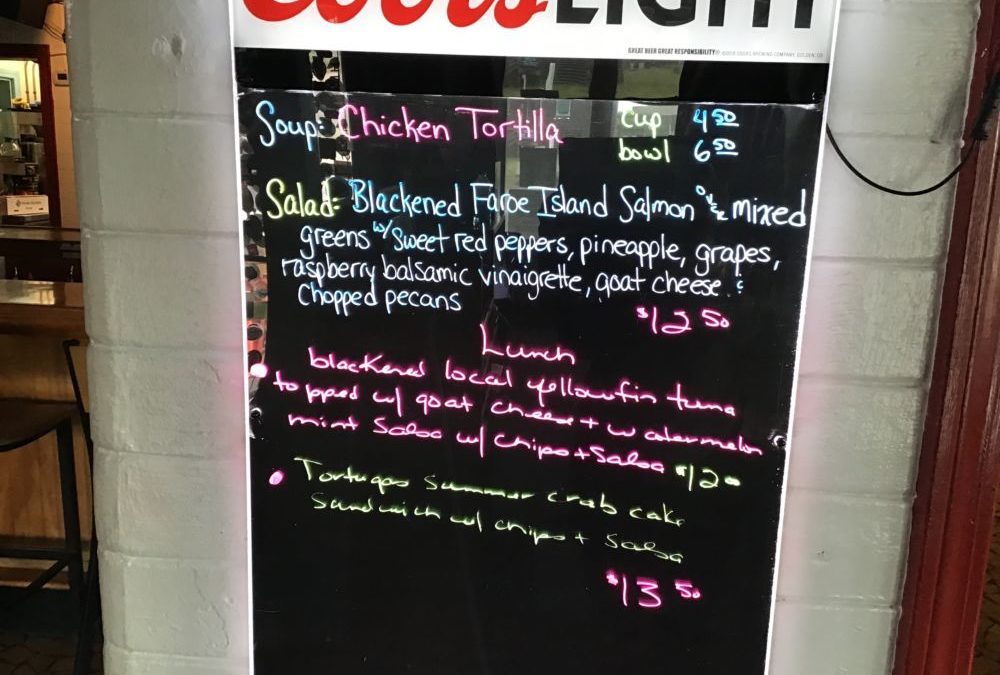 Coors LIGHT
GREAT BEER GREAT RESPONSIBILITY®
Soup: Chicken Tortilla cup 4.50
bowl 6.50
Salad: Blackened Faroe Island Salmon over mixed
greens w/ Sweet red peppers, pineapple, grapes,
raspberry balsamic vinaigrette, goat cheese &
Chopped pecans
$12 50
Lunch
blackened local yellowfin tuna
topped w/ goat cheese + watermelon
mint Salsa w/ Chips + Salsa $12 00
Tortugas Summer crab cake
Sandwich w/ chips + Salsa
$13 50